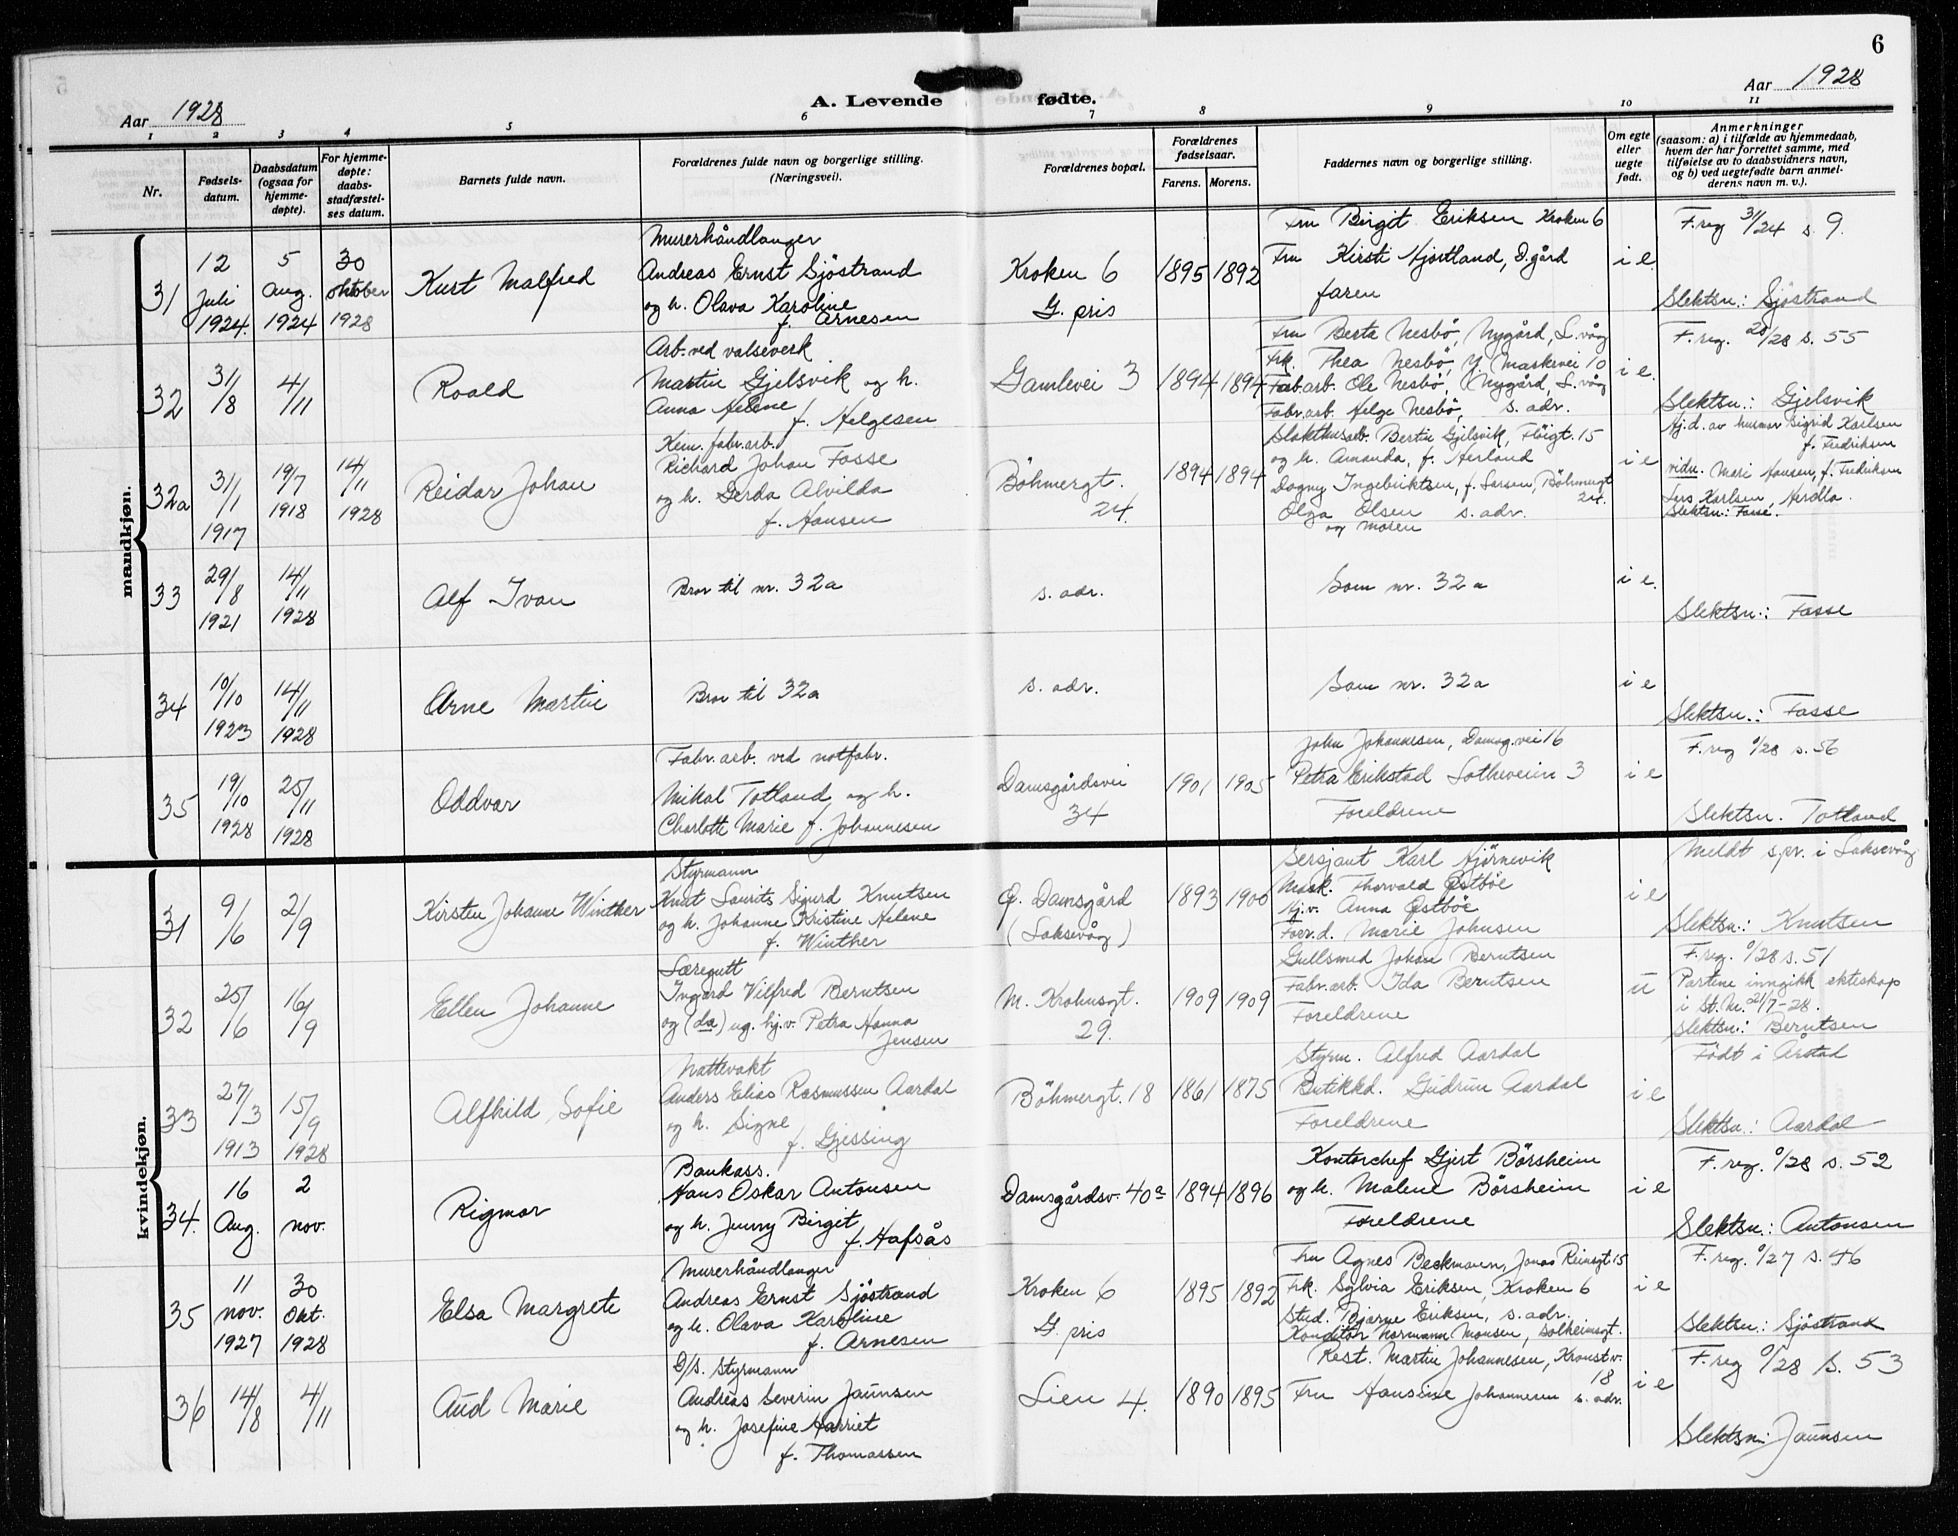 6
Aar 1928
A. Levende fødte.
Aar 1928
1 2 3 4 5 6 7 8 9 10 11
Nr.
Fødselsdatum.
Daabsdatum (ogsaa for hjemmedøpte).
For hjemmedøpte: daabsstadfæstelses datum.
Barnets fulde navn.
Forældrenes fulde navn og borgerlige stilling. (Næringsvei).
Forældrenes bopæl.
Forældrenes fødselsaar.
Farens. Morens.
Faddernes navn og borgerlige stilling.
Om egte eller uegte født.
Anmerkninger
(saasom: a) i tilfælde av hjemmedaab, hvem der har forrettet samme, med tilføielse av to daabsvidners navn, og b) ved uegtefødte barn anmelderens navn m. v.).
mandkjøn.
31
12 Juli 1924.
5 Aug. 1924
30 oktober 1928
Kurt Malfred
Murerhåndlanger
Andreas Ernst Sjöstrand
og h. Olava Karoline
f. Arnesen
Kroken 6
G. pris
1895 1892
Fru Birgit Eriksen Kroken 6
Fru Kirsti Hjortland, D.gård
faren
i e.
F.reg 31/24 s. 9.
Slektsn: Sjöstrand
32
31/8
4/11
Roald
Arb. ved valseverk
Martin Gjelsvik og h.
Anna Helene
f. Helgesen
Gamlevei 3
1894 1894
Fru Berta Nesbø, Nygård, L.våg
Frk. Thea Nesbø, Y. Maskevei 10
Fab.arb. Ole Nesbø, Nygård, L.våg
Fabr.arb. Helge Nesbø, s. adr.
i e.
F.reg. 20/28 s. 55
Slektsn.: Gjelsvik
32a
31/1 1917
19/7 1918
14/11 1928
Reidar Johan
Kem. fabr.arb.
Richard Johan Fosse
og h. Gerda Alvilda
f. Hansen
Böhmergt. 24.
1894 1894
Slakthusarb. Bertin Gjelsvik, Fløigt. 15
og h. Amanda, f. Herland
Dagny Ingebriktsen, f. Larsen, Böhmergt 24.
Olga Olsen s. adr.
og moren
i e
Hj.d. av husmor Sigrid Karlsen
f. Fredriksen
vidn. Mari Hansen, f. Fredriksen
Lars Karlsen, Herdla.
Slektsn: Fosse.
33
29/8 1921
14/11 1928
Alf Ivan
Bror til nr. 32a
s. adr.
Som nr. 32a
i e.
Slektsn.: Fosse
34
10/10 1923
14/11 1928
Arne Martin
Bror til 32a
s. adr.
Som nr. 32a
i e
Slektsn.: Fosse
35
19/10 1928
25/11 1928
Oddvar
Fabr.arb. ved notfabr.
Mikal Totland og h.
Charlotte Marie f. Johannesen
Damsgårdsvei 34
1901 1905
John Johannesen, Damsg.vei 16
Petra Erikstad Lotheveien 3
Foreldrene
i e
F.reg 0/28 s. 56
Slektsn. Totland
kvindekjøn.
31
9/6
2/9
Kirsten Johanne Winther
Styrmann
Knut Laurits Sigurd Knutsen
og h. Johanne Kristine Helene
f. Winther
Ø. Damsgård
(Laksevåg)
1893 1900
Sersjant Karl Hjörnevik
Mask. Thorvald Østbøe
Hj.v. Anna Østbøe
Forr.d. Marie Johnsen
i e
Meldt s.pr. i Laksevåg
Slektsn.: Knutsen
32
25/6
16/9
Ellen Johanne
Læregutt
Ingard Vilfred Berntsen
og (da) ug. hj.v. Petra Hanna
Jensen
M. Krohnsgt. 29.
1909 1909
Gullsmed Johan Berntsen
Fabr.arb. Ida Berntsen
Foreldrene
u
F.reg. 0/28 s. 51
Partene inngikk ekteskap
i St. M. 21/7-28.
Slektsn.: Berntsen
33
27/3 1913
15/9 1928
Alfhild Sofie
Nattevakt
Anders Elias Rasmussen Aardal
og h. Signe
f. Gjessing
Böhmergt. 18
1861 1875
Styrm. Alfred Aardal
Butikkd. Gudrun Aardal
Foreldrene
i e
Født i Årstad
Slektsn.: Aardal
34.
16 Aug.
2 nov.
Rigmor
Bankass.
Hans Oskar Antonsen
og h. Jenny Birgit
f. Hafsås
Damsgårdsv. 40a
1894 1896
Kontorchef Gjert Börsheim
og h. Malene Börsheim
Foreldrene
i e
F.reg. 0/28 s. 52
Slektsn.: Antonsen
35
11 nov. 1927
30 Okt. 1928
Elsa Margrete
Murerhåndlanger
Andreas Ernst Sjöstrand
og h. Olava Karoline
f. Arnesen
Kroken 6
G. pris
1895 1892
Fru Agnes Beckmann, Jonas Reinsgt 15
Frk. Sylvia Eriksen, Kroken 6
Stud. Bjarne Eriksen, s. adr.
Konditor Normann Monsen, Solheimsgt.
i e
F.reg. 0/27 s. 46
Slektsn: Sjöstrand
36
14/8
4/11
Aud Marie
D/s. Styrmann
Andreas Severin Jaunsen
og h. Josefine Harriet
f. Thomassen
Lien 4.
1890 1895
Rest. Martin Johannesen, Kronst.v. 18
Fru Hansine Johannesen s. adr.
i e
F.reg 0/28 s. 53
Slektsn: Jaunsen